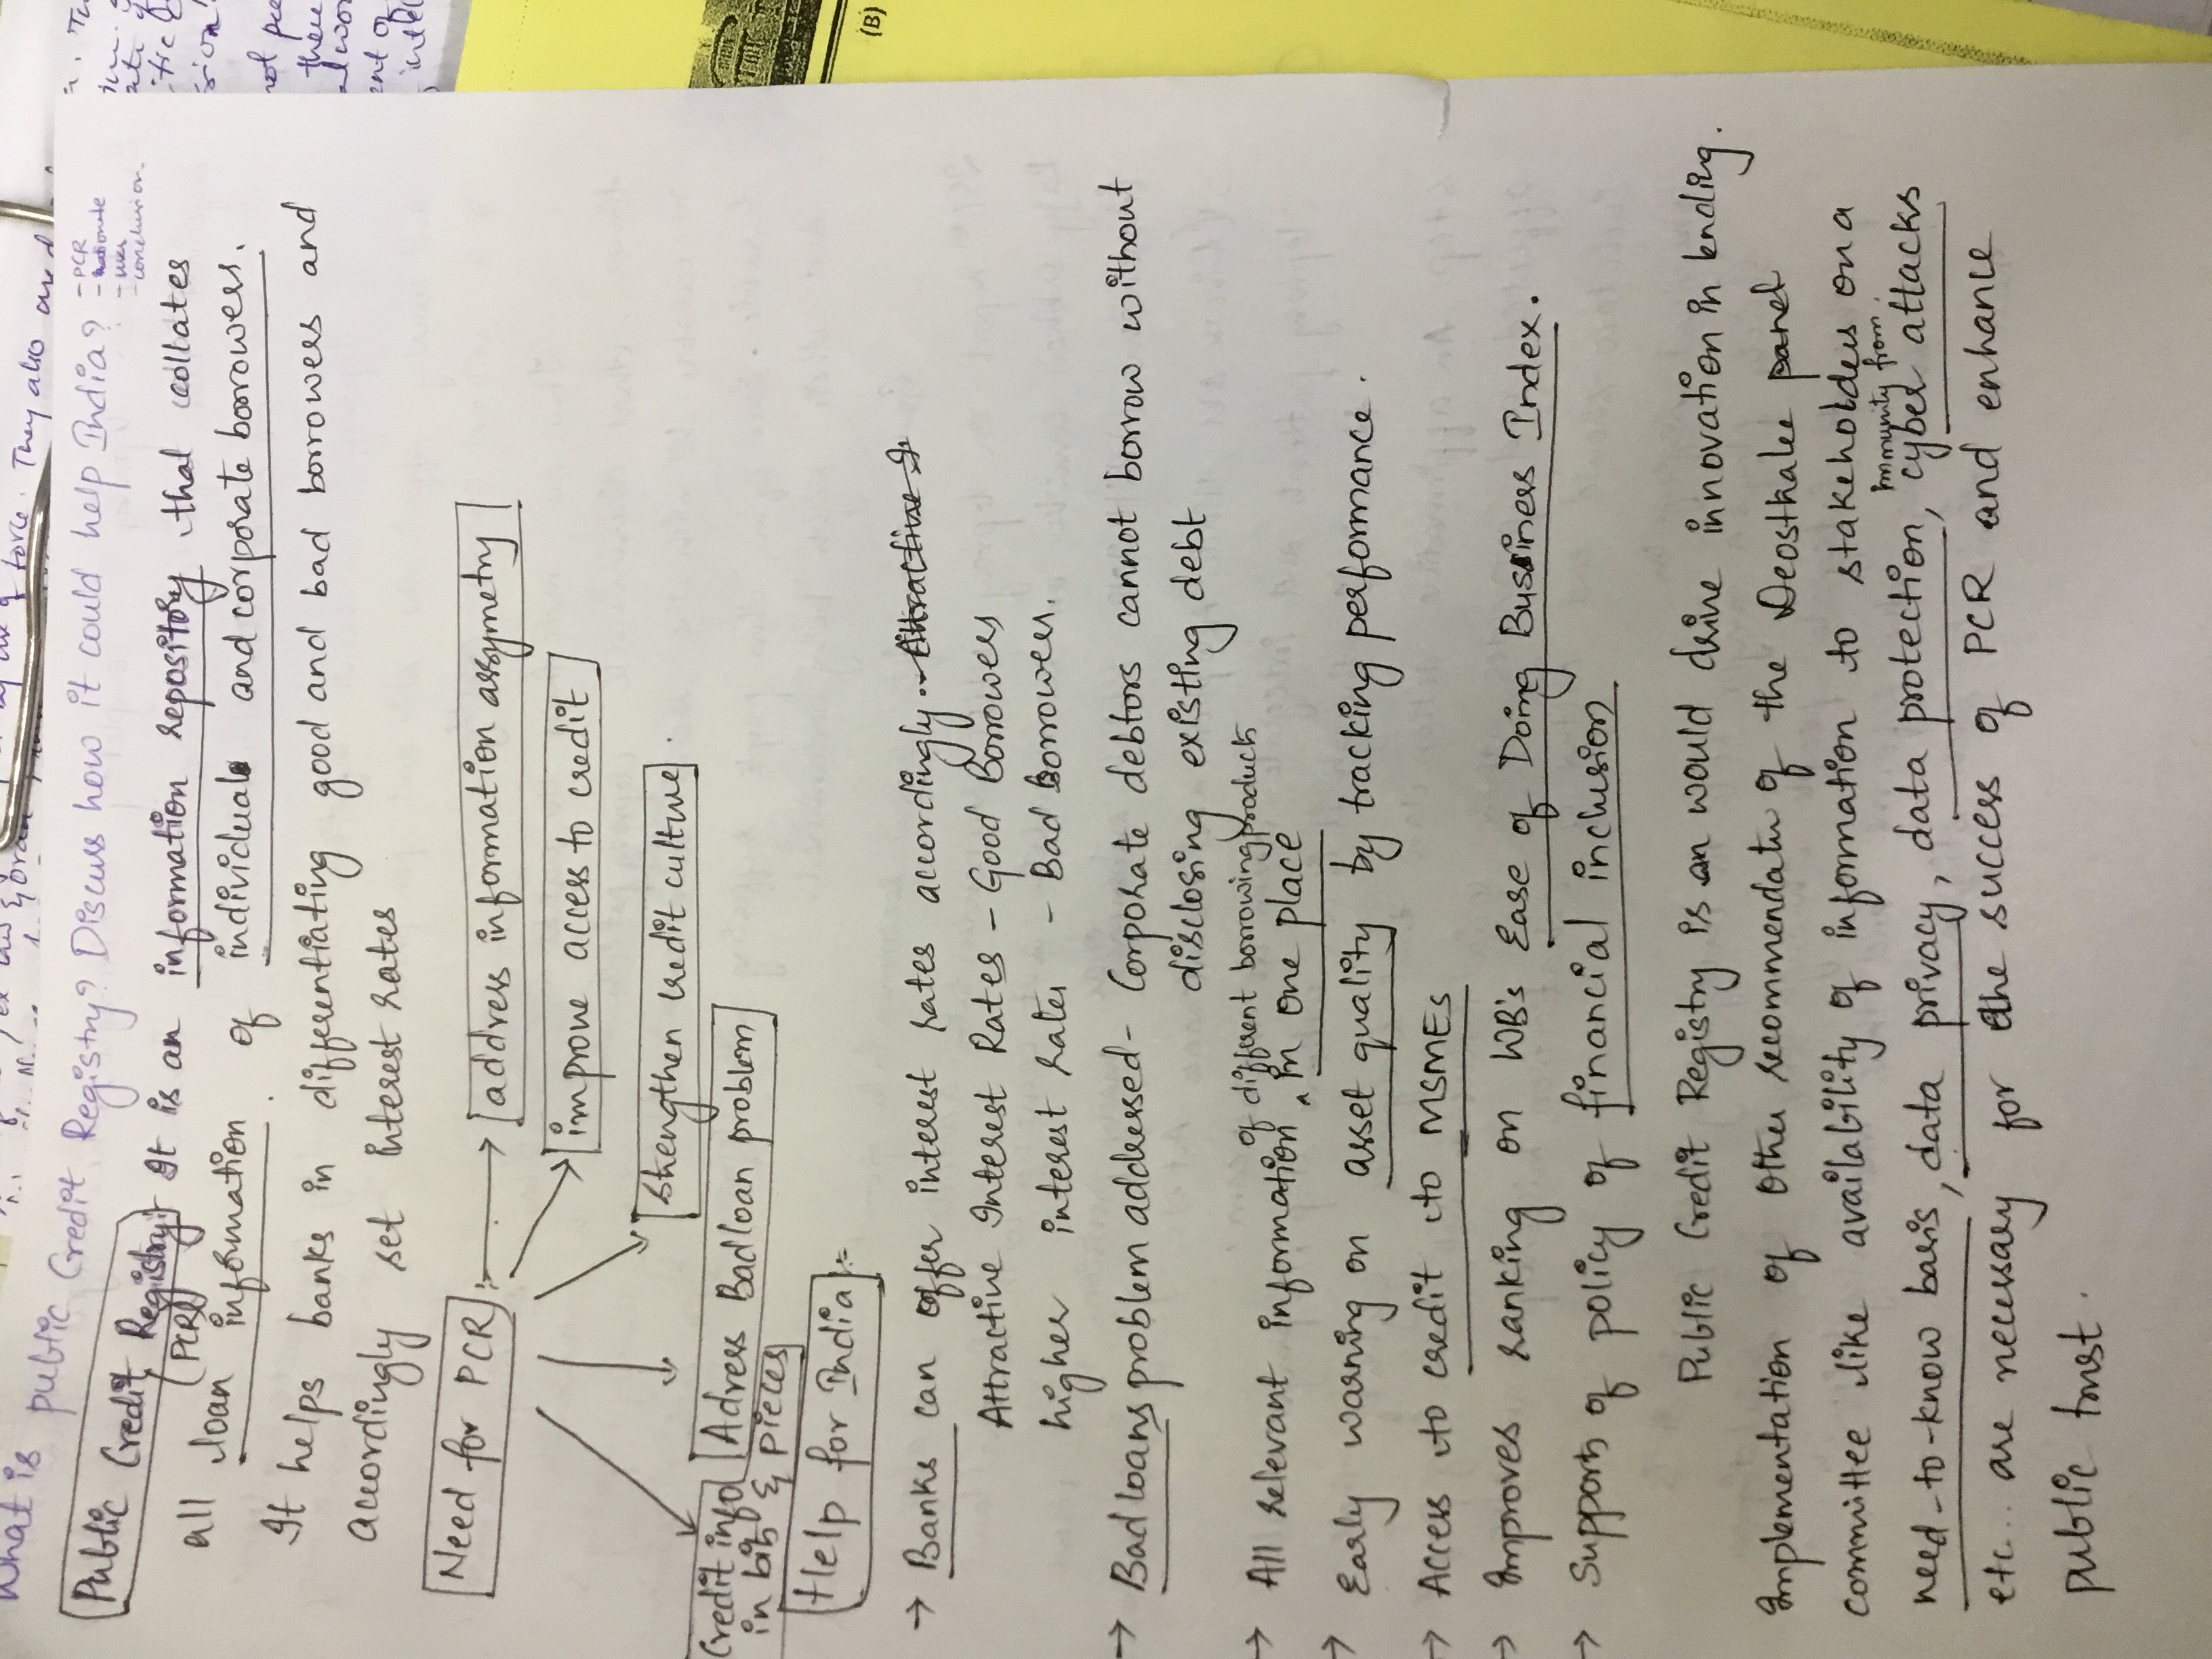 What is public Credit Registry? Discuss how it could help India?
- PCR
- uses
- conclusion
Public Credit Registry:
(PCR)
It is an information repository that colltates
all loan information of individuals and corporate borrowers.
It helps banks in differentiating good and bad borrowers and
accordingly set interest rates
Need for PCR:-
address information assymetry
improve access to credit
Strengthen credit culture
Adress Bad loan problem
Credit info
in bits & pieces
Help for India:-
→ Banks can offer interest rates accordingly..
Attractive Interest Rates - Good Borrowers
higher interest rates - Bad Borrowers.
→ Bad loans problem addressed - Corporate debtors cannot borrow without
disclosing existing debt
→ All relevant information ^ of different borrowing products in one place
→ Early warning on asset quality by tracking performance.
→ Access to credit to MSMEs
→ Improves ranking on WB's Ease of Doing Bussiness Index.
→ Supports of policy of financial inclusion
Public Credit Registry is an would drive innovation in lending.
Implementation of other recommendatn of the Deosthalee panel
committee like availability of information to stakeholders on a
need-to-know basis, data privacy, data protection, immunity from cyber attacks
etc... are necessary for the success of PCR and enhance
public trust.
(B)